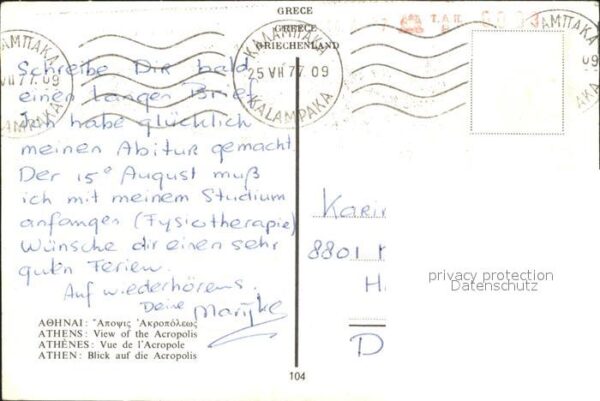 GRECE
GREECE
GRIECHENLAND
ΚΑΛΑΜΠΑΚΑ
25 VII 77. 09
KALAMPAKA
Schreibe Dir bald
einen langen Brief.
Ich habe glücklich
meinen Abitur gemacht
Der 15e August muß
ich mit meinem Studium
anfangen (Fysiotherapie)
Wünsche dir einen sehr
guten Ferien.
Auf wiederhörens.
Deine Marijke
Karin
8801
H
D
privacy protection
Datenschutz
ΑΘΗΝΑΙ: Ἄποψις Ἀκροπόλεως
ATHENS: View of the Acropolis
ATHÈNES: Vue de l'Acropole
ATHEN: Blick auf die Acropolis
104